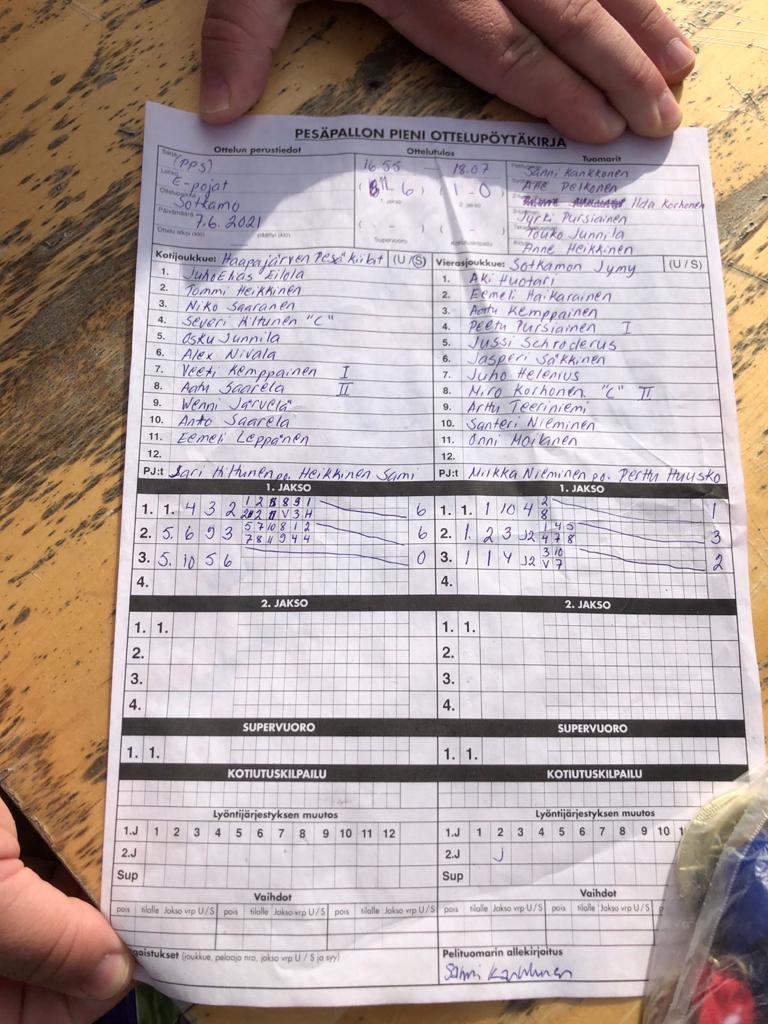 PESÄPALLON PIENI OTTELUPÖYTÄKIRJA
Ottelun perustiedot Ottelutulos Tuomarit
Sarja (PPS) 16.55 — 18.07 Sanni Kankkonen
Lohko E-pojat ( 11 - 6 ) ( 1 - 0 ) Atte Pelkonen
1. jakso 2. jakso Ilda Korhonen
Ottelupaikka Sotkamo Jyrki Pursiainen
Päivämäärä 7.6.2021 ( - ) ( - ) Touko Junnila
Ottelu alkoi (klo) päättyi (klo) Supervuoro Kotiutuskilpailu Anne Heikkinen
Kotijoukkue: Haapajärven Pesä kiikit (U/S) Vierasjoukkue: Sotkamon Jymy (U/S)
1. Juho Elias Eilola 1. Aki Huotari
2. Tommi Heikkinen 2. Eemeli Haikarainen
3. Niko Saaranen 3. Aattu Kemppainen
4. Severi Hiltunen "C" 4. Peetu Pursiainen I
5. Osku Junnila 5. Jussi Schroderus
6. Alex Nivala 6. Jasperi Säkkinen
7. Veeti Kemppainen I 7. Juho Helenius
8. Aatu Saarela II 8. Miro Korhonen "C" II
9. Wenni Järvelä 9. Arttu Teeriniemi
10. Anto Saarela 10. Santeri Nieminen
11. Eemeli Leppänen 11. Onni Moilanen
12. 12.
PJ:t Sari Hiltunen po. Heikkinen Sami PJ:t Milkka Nieminen po. Perttu Huusko
1. JAKSO 1. JAKSO
1. 1. 4 3 2 6 1. 1. 1 10 4 2 8 1
2. 5. 6 9 3 5 7 10 8 1 2 6 2. 1. 2 3 J2 1 4 5 3
7 8 11 9 4 4 4 7 8
3. 5. 10 5 6 0 3. 1 1 4 J2 3 10 2
V 7
4. 4.
2. JAKSO 2. JAKSO
1. 1. 1. 1.
2. 2.
3. 3.
4. 4.
SUPERVUORO SUPERVUORO
1. 1. 1. 1.
KOTIUTUSKILPAILU KOTIUTUSKILPAILU
Lyöntijärjestyksen muutos Lyöntijärjestyksen muutos
1.J 1 2 3 4 5 6 7 8 9 10 11 12 1.J 1 2 3 4 5 6 7 8 9 10
2.J 2.J J
Sup Sup
Vaihdot Vaihdot
pois tilalle Jakso vrp U/S pois tilalle Jakso vrp U/S pois tilalle Jakso vrp U/S pois tilalle Jakso vrp U/S pois tilalle Jakso vrp U/S
(joukkue, pelaaja nro, jakso vrp U/S ja syy) Pelituomarin allekirjoitus
Sanni Kankkonen